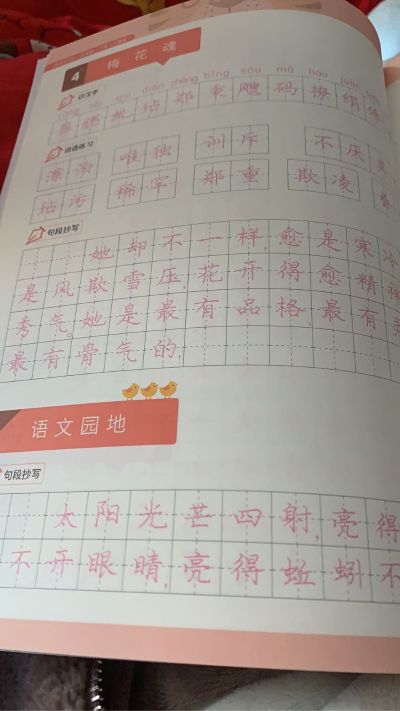 4 梅花魂
识汉字
qiú diàn zhèng bǐng sōu mǎ liáo juàn
虬 玷 郑 秉 飕 码 撩 绢
词语练习
漂泊 唯独 训斥 不厌
玷污 稀罕 郑重 欺凌
句段抄写
她却不一样,愈是寒冷
是风欺雪压,花开得愈精神
秀气。她是最有品格、最有灵
最有骨气的。
语文园地
句段抄写
太阳光芒四射,亮得
不开眼睛,亮得蚯蚓不